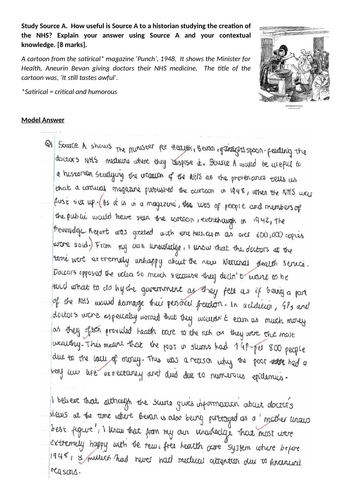 Study Source A. How useful is Source A to a historian studying the creation of
the NHS? Explain your answer using Source A and your contextual
knowledge. [8 marks].
A cartoon from the satirical* magazine 'Punch', 1948. It shows the Minister for
Health, Aneurin Bevan giving doctors their NHS medicine. The title of the
cartoon was, 'It still tastes awful'.
*Satirical = critical and humorous
Model Answer
Source A shows the minister for Health, Bevan, spoon-feeding the
doctors NHS medicine where they despise it. Source A would be useful to
a historian studying the creation of the NHS as the provenance tells us
that a comical magazine published the cartoon in 1948, when the NHS was
first set up. As it is in a magazine, lots of people and members of
the public would have seen the cartoon, in 1942, the
Beveridge Report was greeted with enthusiasm as over 600,000 copies
were sold. From my own knowledge, I know that the doctors at the
time were extremely unhappy about the new National Health Service.
Doctors opposed the idea so much because they didn't want to be
told what to do by the government as they felt as if being a part
of the NHS would damage their personal freedom. In addition, GPs and
doctors were especially worried that they wouldn't earn as much money
as they often provided health care to the rich as they were the most
wealthy. This meant that the poor in slums had 1 GP per 800 people
due to the lack of money. This was a reason why the poor had a
very low life expectancy and died due to numerous epidemics.
I believe that although the source gives information about doctor's
views at the time where Bevan is also being portrayed as a 'mother knows
best figure', I know that from my own knowledge that most were
extremely happy with the new, free health care system where before
1948, much had never had medical attention due to financial
reasons.